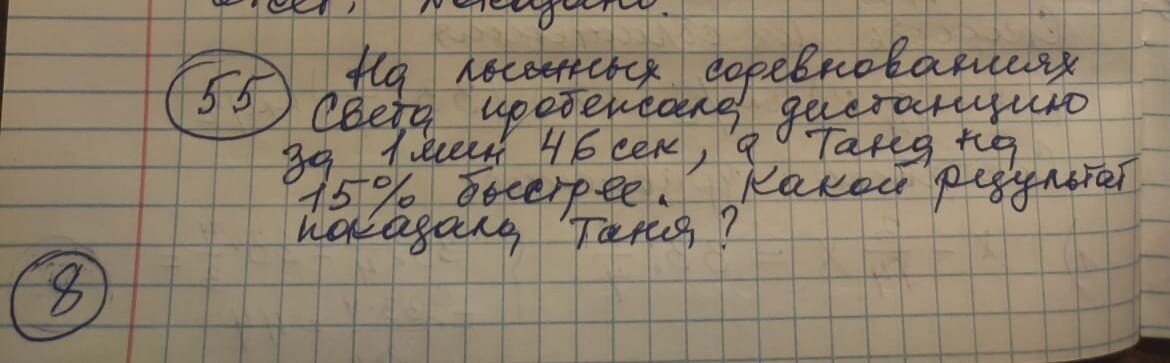 показано.
55 На лыжных соревнованиях
Света пробежала дистанцию
за 1 мин 46 сек, а Таня на
15% быстрее. Какой результат
показала Таня?
8